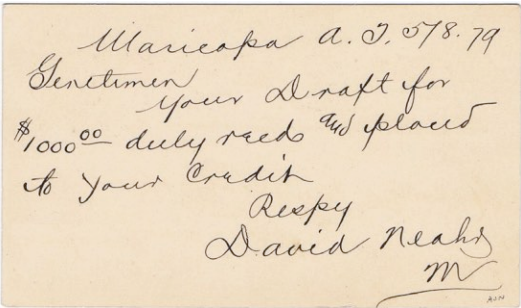 Maricopa A.T. 5/8.79
Genetlmen
Your Draft for
$1000.00 duly recd and placed
to your Credit
Respy
David Neahr
M